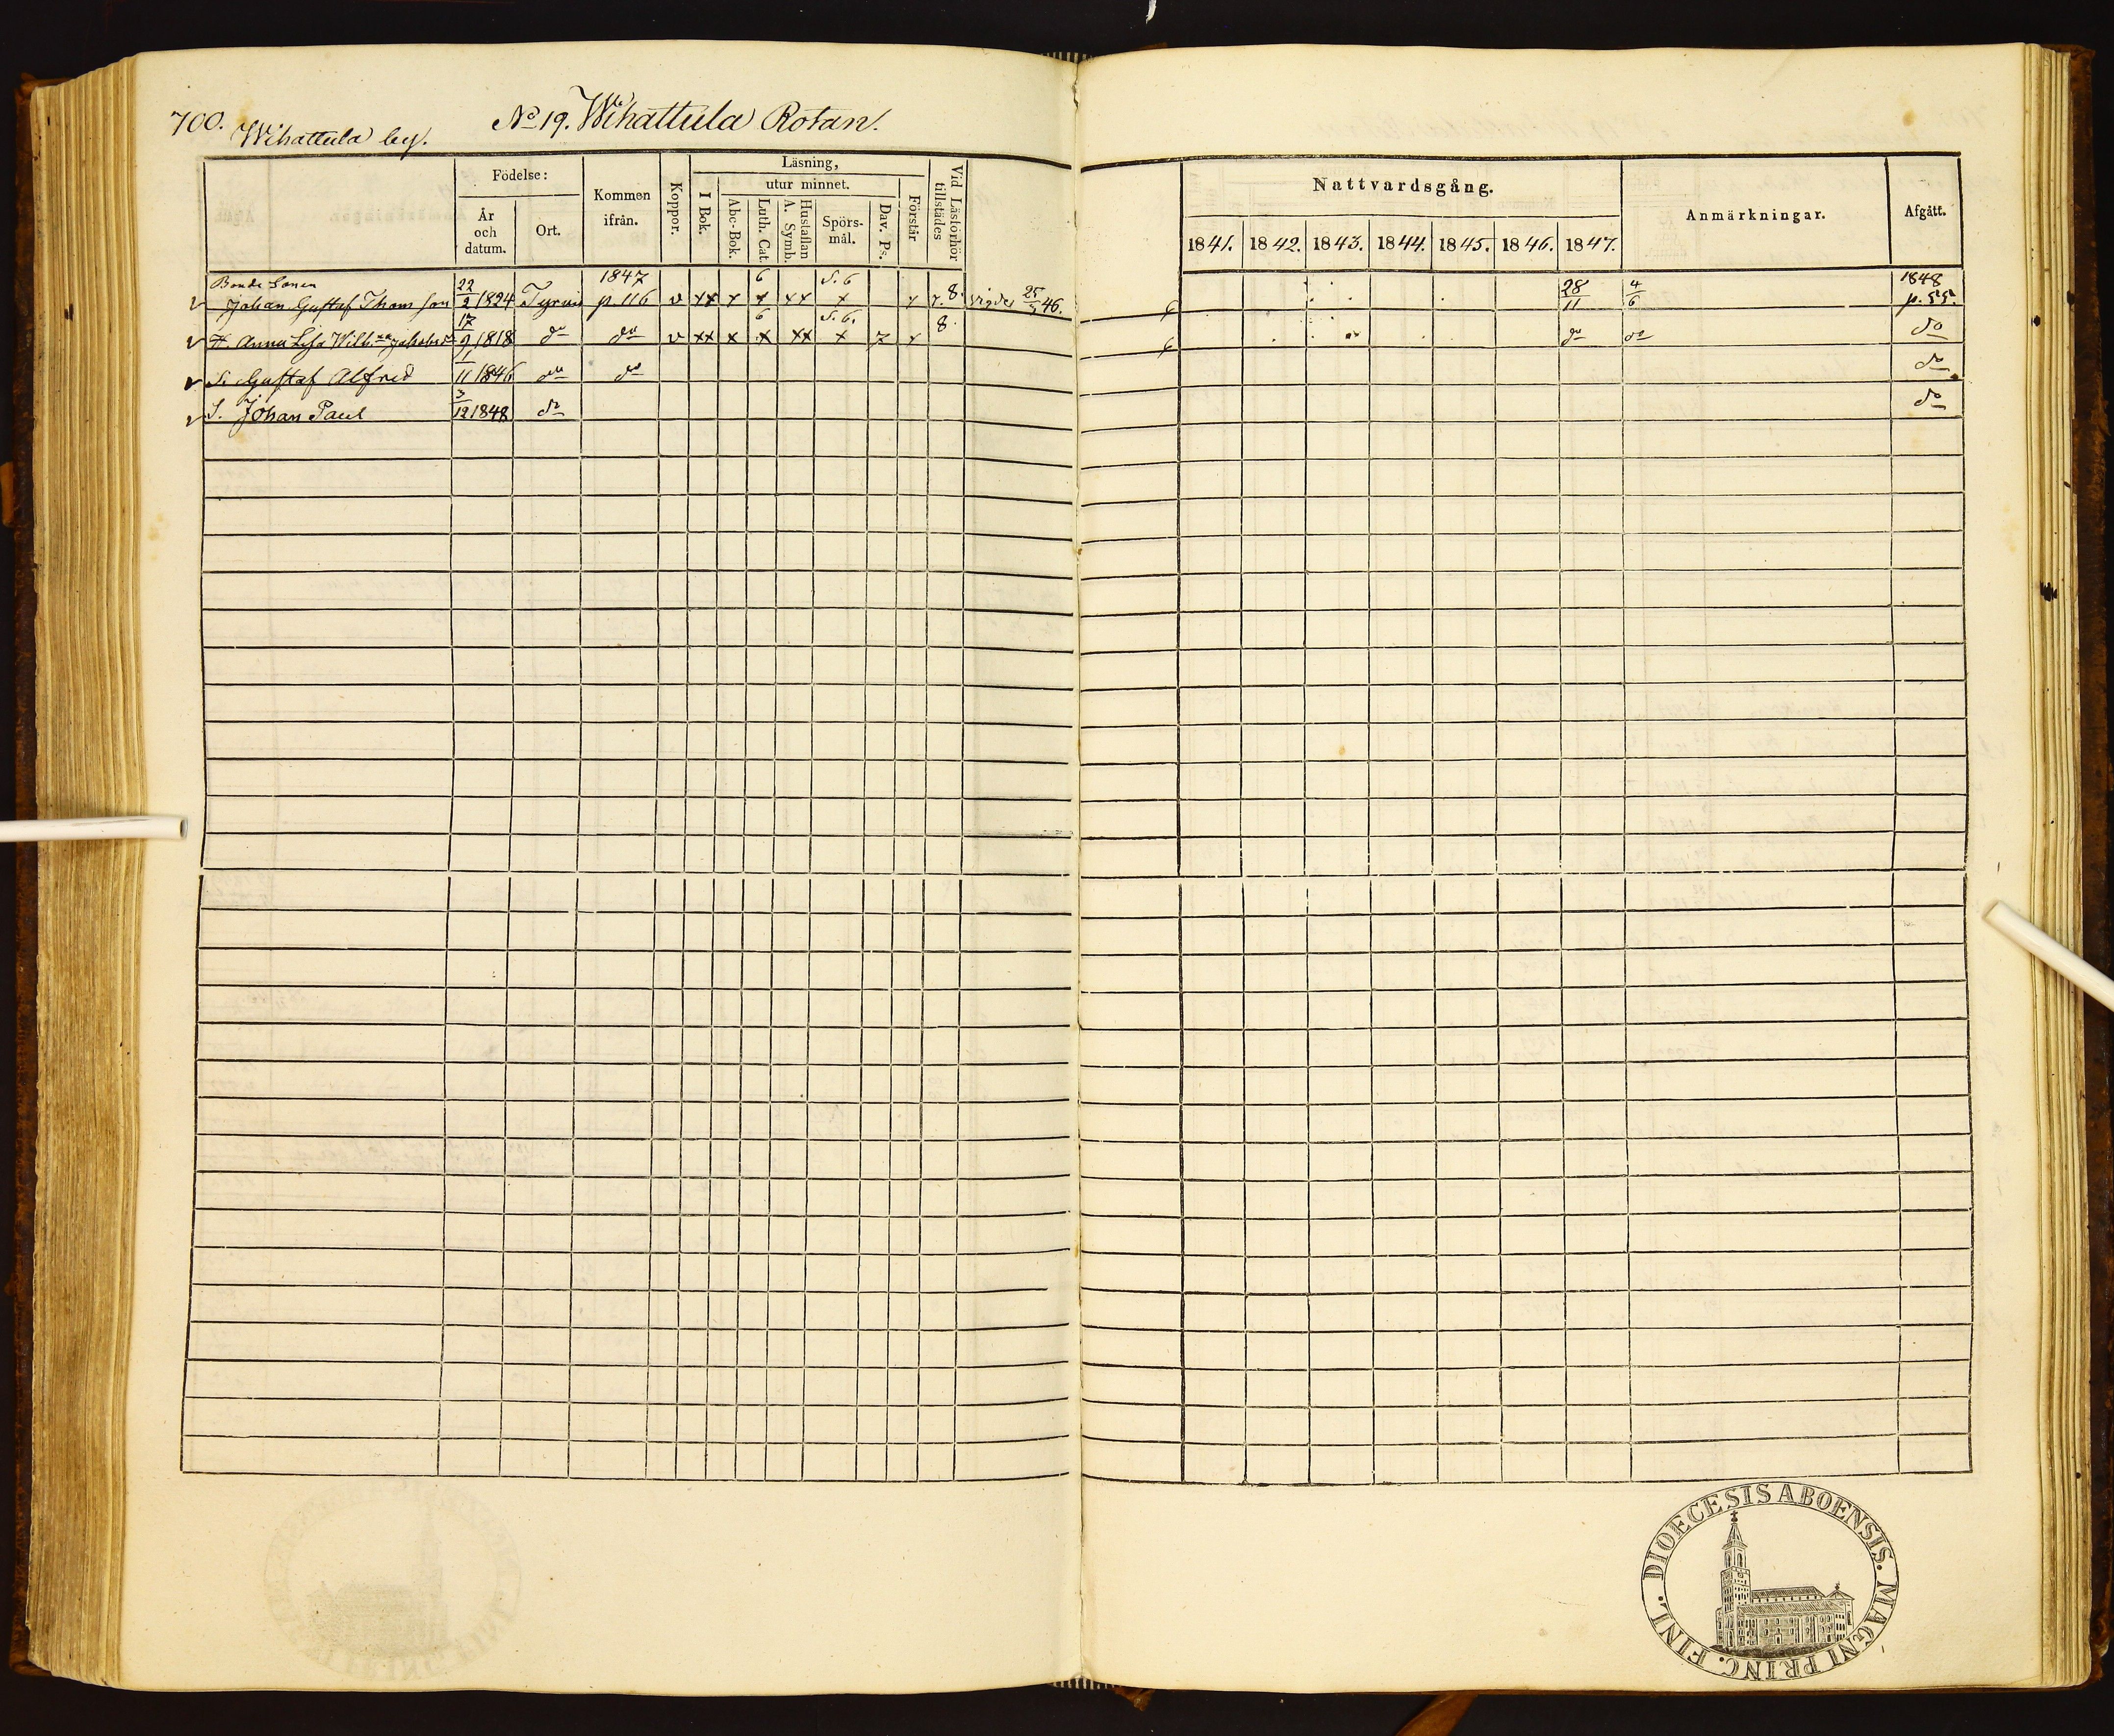 700. No 19. Wihattula Rotan.
Wihattula by.
Födelse:
År och datum.
Ort.
Kommen ifrån.
Koppor.
Läsning,
I Bok.
utur minnet.
Abc-Bok.
Luth. Cat.
Hustaflan A. Symb.
Spörs-mål.
Dav. Ps.
Förstår
Vid Läsförhör tillstädes
Nattvardsgång.
1841. 1842. 1843. 1844. 1845. 1846. 1847.
Anmärkningar.
Afgått.
Bonde Sonen 22 1847 6 S. 6 28 4 1848
v Johan Gustaf Thomson 2 1824 Tyrvis p. 116 v xx x x xx x 8. vigdes 25/5 46. 11 6 p. 55.
v H. Anna Lisa 17/9 1818 do do v xx x 6 x xx S. 6. x 7 8. do do do
v S. Gustaf Alfred 11 1846 do do do
v S. Johan Paul 3/12 1848 do do
DIOECESIS ABOENSIS. MAGNI PRINC. FINL.